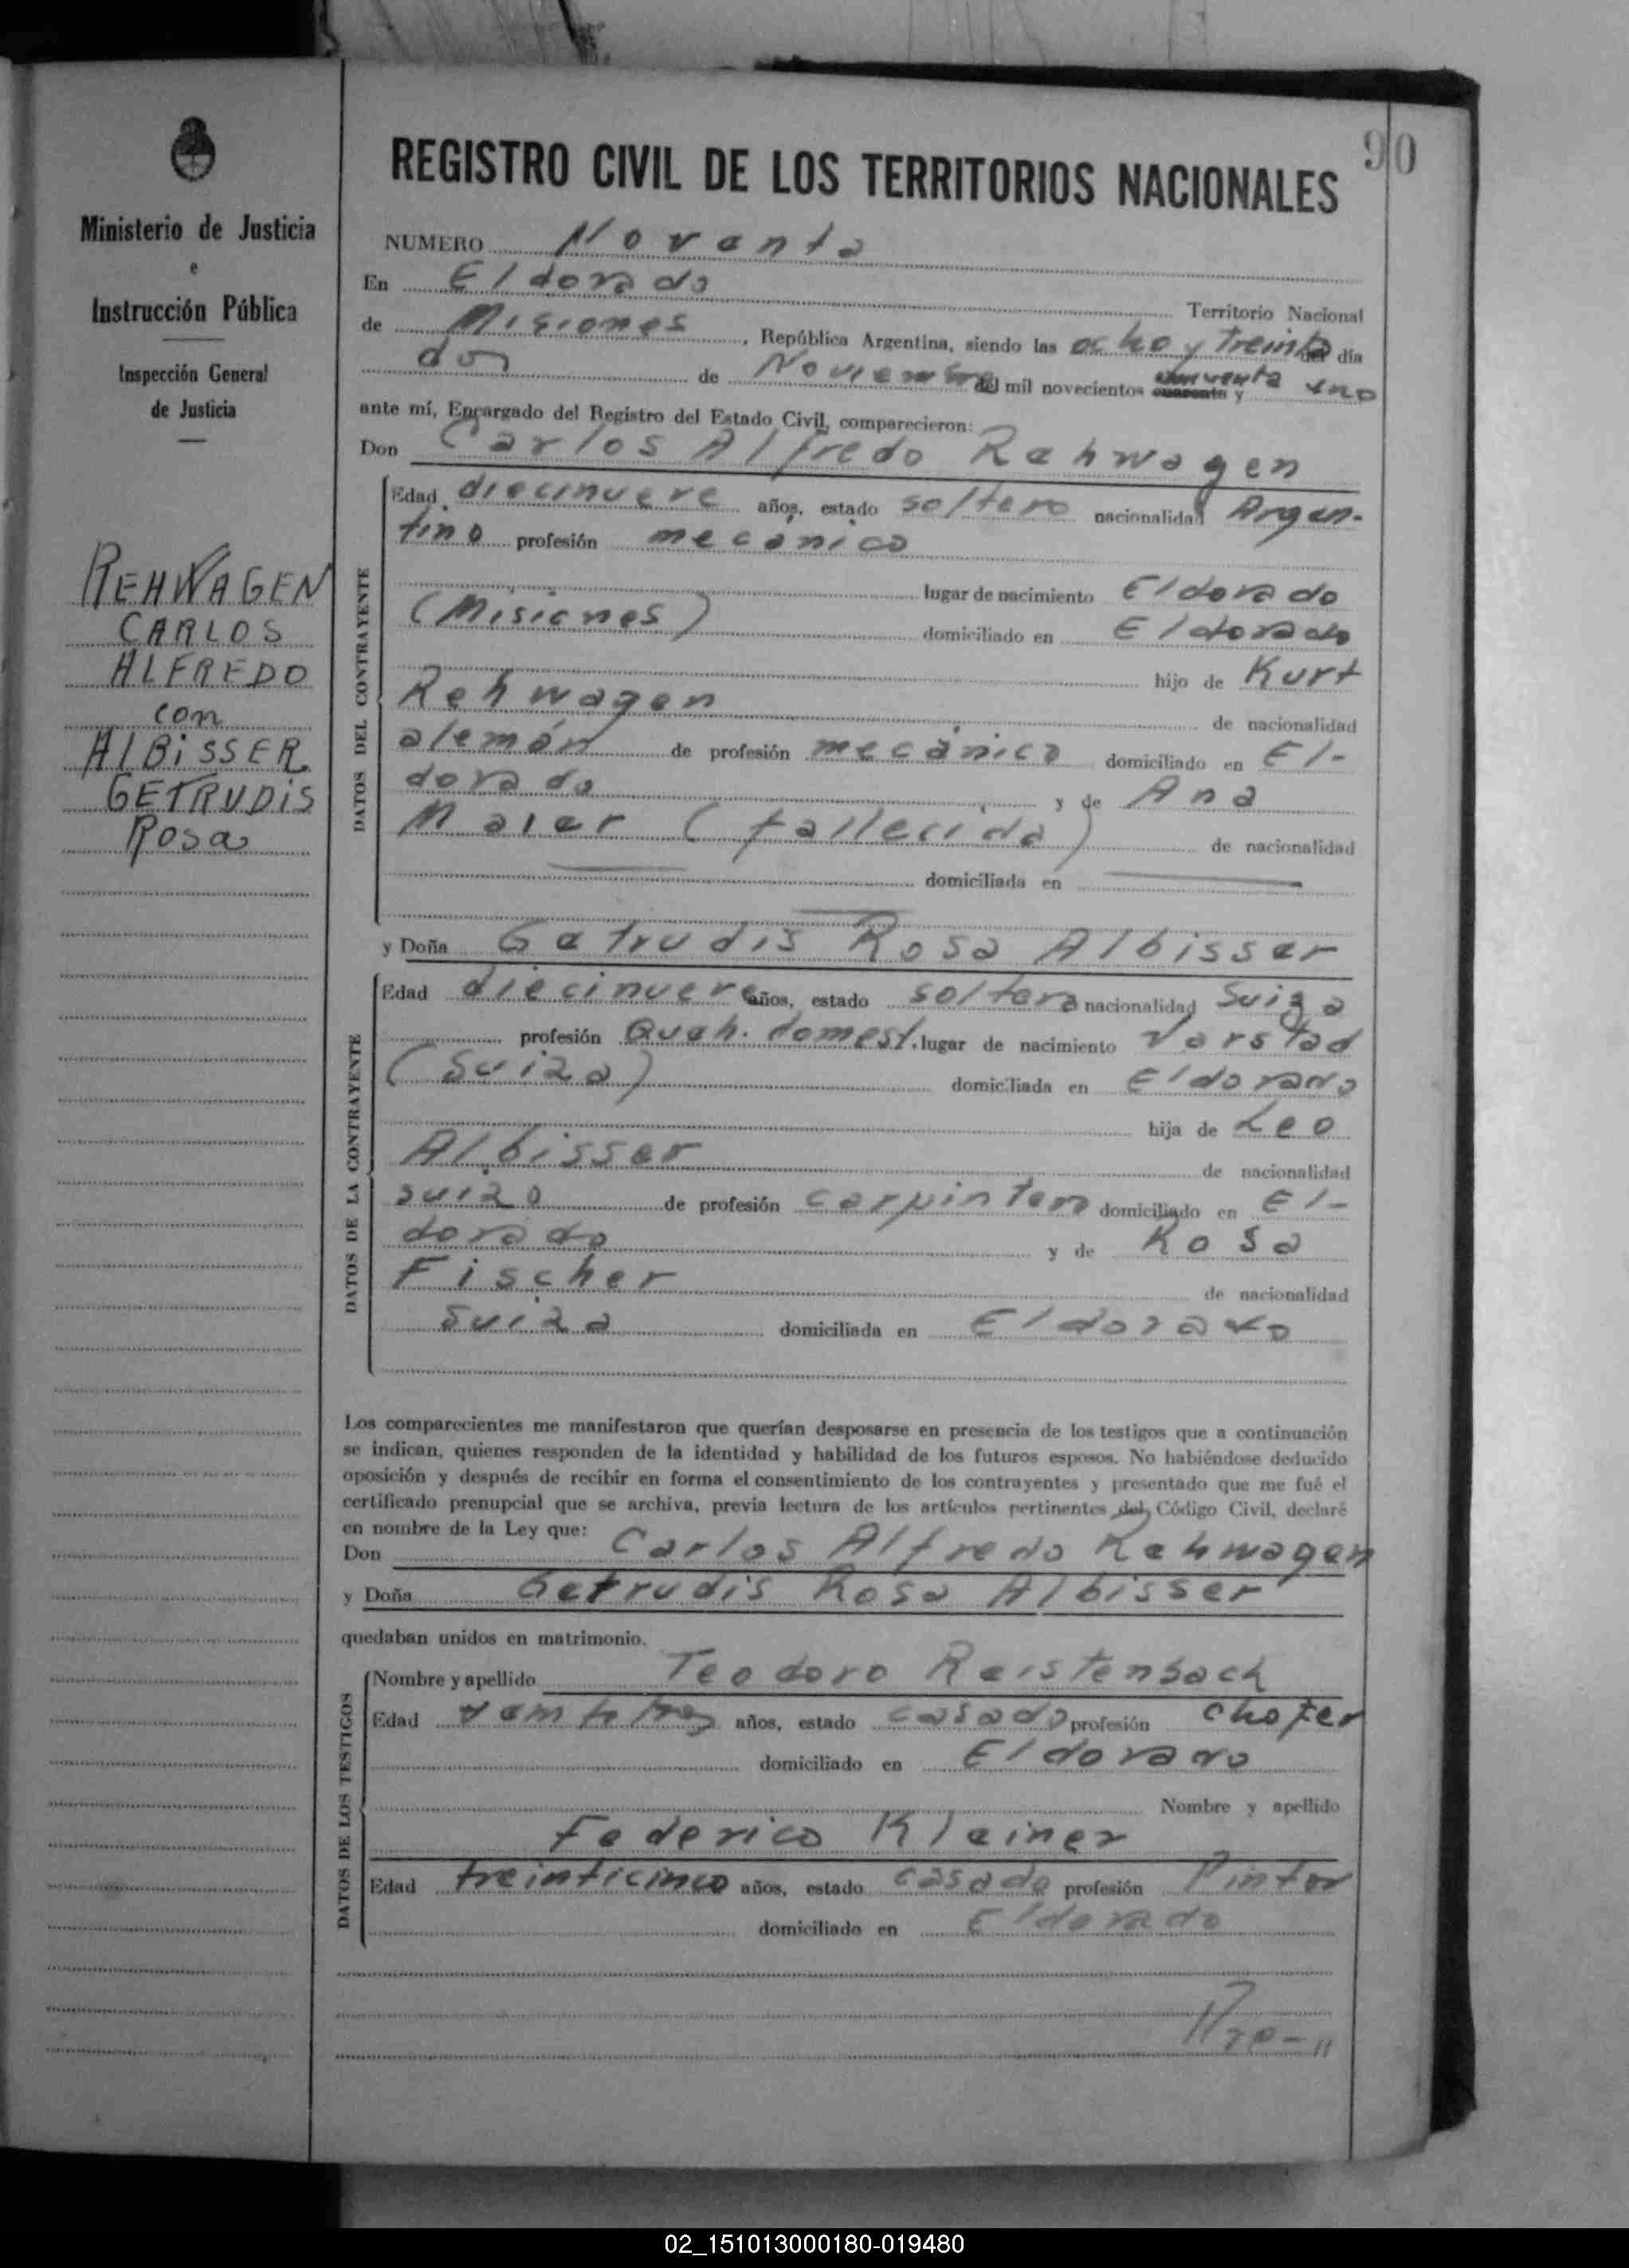 90
REGISTRO CIVIL DE LOS TERRITORIOS NACIONALES
Ministerio de Justicia
e
Instrucción Pública
Inspección General
de Justicia
REHWAGEN
CARLOS
ALFREDO
con
AlBiSSER
GETRUDiS
Rosa
NUMERO Noventa
En Eldorado Territorio Nacional
de Misiones, República Argentina, siendo las ocho y treinta del día
dos de Noviembre del mil novecientos cuarenta y uno
ante mí, Encargado del Registro del Estado Civil, comparecieron:
Don Carlos Alfredo Rehwagen
DATOS DEL CONTRAYENTE
Edad diecinueve años, estado soltero nacionalidad Argen-
tino profesión mecánico
lugar de nacimiento Eldorado
(Misiones) domiciliado en Eldorado
hijo de Kurt
Rehwagen de nacionalidad
alemán de profesión mecánico domiciliado en El-
dorado y de Ana
Maier (fallecida) de nacionalidad
domiciliada en
y Doña Getrudis Rosa Albisser
DATOS DE LA CONTRAYENTE
Edad diecinueve años, estado soltera nacionalidad Suiza
profesión Queh. domest. lugar de nacimiento
(Suiza) domiciliada en Eldorado
hija de Leo
Albisser de nacionalidad
suizo de profesión carpintero domiciliado en El-
dorado y de Rosa
Fischer de nacionalidad
suiza domiciliada en Eldorado
Los comparecientes me manifestaron que querían desposarse en presencia de los testigos que a continuación
se indican, quienes responden de la identidad y habilidad de los futuros esposos. No habiéndose deducido
oposición y después de recibir en forma el consentimiento de los contrayentes y presentado que me fué el
certificado prenupcial que se archiva, previa lectura de los artículos pertinentes del Código Civil, declaré
en nombre de la Ley que:
Don Carlos Alfredo Rehwagen
y Doña Getrudis Rosa Albisser
quedaban unidos en matrimonio.
DATOS DE LOS TESTIGOS
Nombre y apellido Teodoro Reistenbach
Edad años, estado casado profesión chofer
domiciliado en Eldorado
Nombre y apellido
Federico Kleiner
Edad treinticinco años, estado casado profesión Pintor
domiciliado en Eldorado
02_151013000180-019480